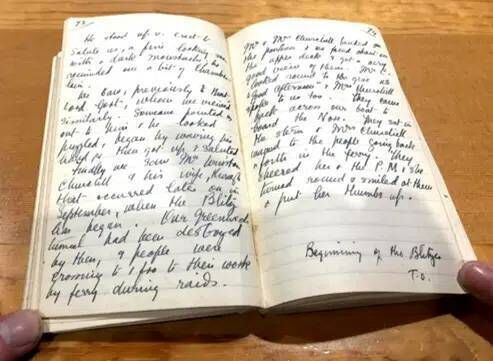 He stood up v. erect to
salute us, a fine looking
with a dark moustache, he
reminded one a bit of Chamber-
lain.
We saw, previously to that
Lord Gort, whom we received
similarly. Someone pointed us
out to him & he looked
puzzled, began by waving his
& then got up & saluted
Finally we saw Mr Winston
Churchill & his wife,
that occurred late on in
September, when the Blitz
has began. Our Greenwich
tunnel had been destroyed
by them, & people were
crossing to & fro to their work
by ferry during raids.
Mr & Mrs Churchill on
the pontoon & we faced them on
the upper deck & got a very
good view of them. Mr C.
looked round to gave us
Good afternoon & Mrs Churchill
spoke to us too. They came
back across our boat to
board the Nore. They sat in
the stern & Mrs Churchill
waved to the people going back
& forth in the ferry. They
cheered her & the P.M., she
turned round & smiled at them
& put her thumbs up.
Beginning of the Blitz
T.O.